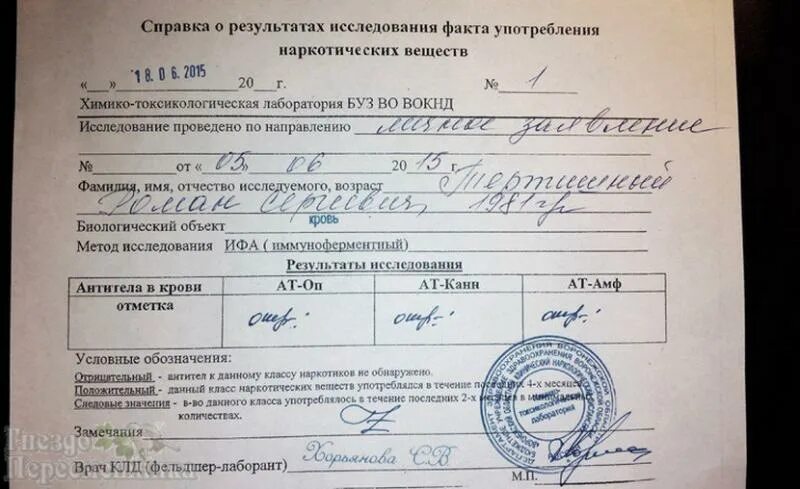 Справка о результатах исследования факта употребления
наркотических веществ
«___» 18.06.2015 20___г. № 1
Химико-токсикологическая лаборатория БУЗ ВО ВОКНД
Исследование проведено по направлению личное заявление
№ от «05» 06 2015 г.
Фамилия, имя, отчество исследуемого, возраст Тертишный
Роман Сергиевич, 1981 г.р
Биологический объект кровь
Метод исследования ИФА ( иммуноферментный)
Результаты исследования
Антитела в крови АТ-Оп АТ-Канн АТ-Амф
отметка отр. отр. отр.
Условные обозначения:
Отрицательный - антител к данному классу наркотиков не обнаружено.
Положительный - данный класс наркотических веществ употреблялся в течение последних 4-х месяцев
Следовые значения - в-во данного класса употреблялось в течение последних 2-х месяцев в минимальных
количествах.
Замечания Z
Врач КЛД (фельдшер-лаборант) Хорьянова С.В
М.П.
химико-
токсикологическая
лаборатория
Гнездо
Пересмешника